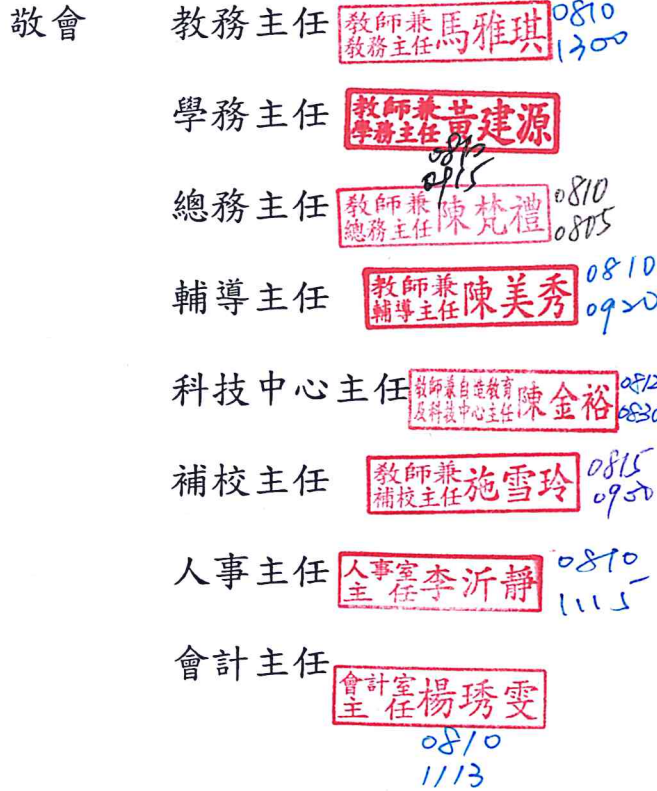 敬會 教務主任 教師兼教務主任馬雅琪 0810
1300
學務主任 教師兼學務主任黃建源
0810
0915
總務主任 教師兼總務主任陳梵禮 0810
0805
輔導主任 教師兼輔導主任陳美秀 0810
0920
科技中心主任 教師兼自造教育及科技中心主任陳金裕 0812
0830
補校主任 教師兼補校主任施雪玲 0815
0900
人事主任 人事室主任李沂靜 0810
1115
會計主任
會計室主任楊琇雯
0810
1113